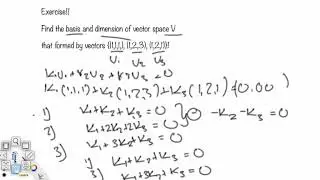 Exercise!!
Find the basis and dimension of vector space V
that formed by vectors {(1,1,1), (1,2,3), (1,2,1)}!
U₁ U₂ U₃
K₁U₁ + K₂U₂ + K₃U₃ = 0
K₁(1,1,1) + K₂(1,2,3) + K₃(1,2,1) = (0,0,0)
1) K₁+K₂+K₃=0 } 0 -K₂-K₃=0
2) K₁+2K₂+2K₃=0
3) K₁+3K₂+K₃=0
1) K₁+K₂+K₃=0
3) K₁+3K₂+K₃=0